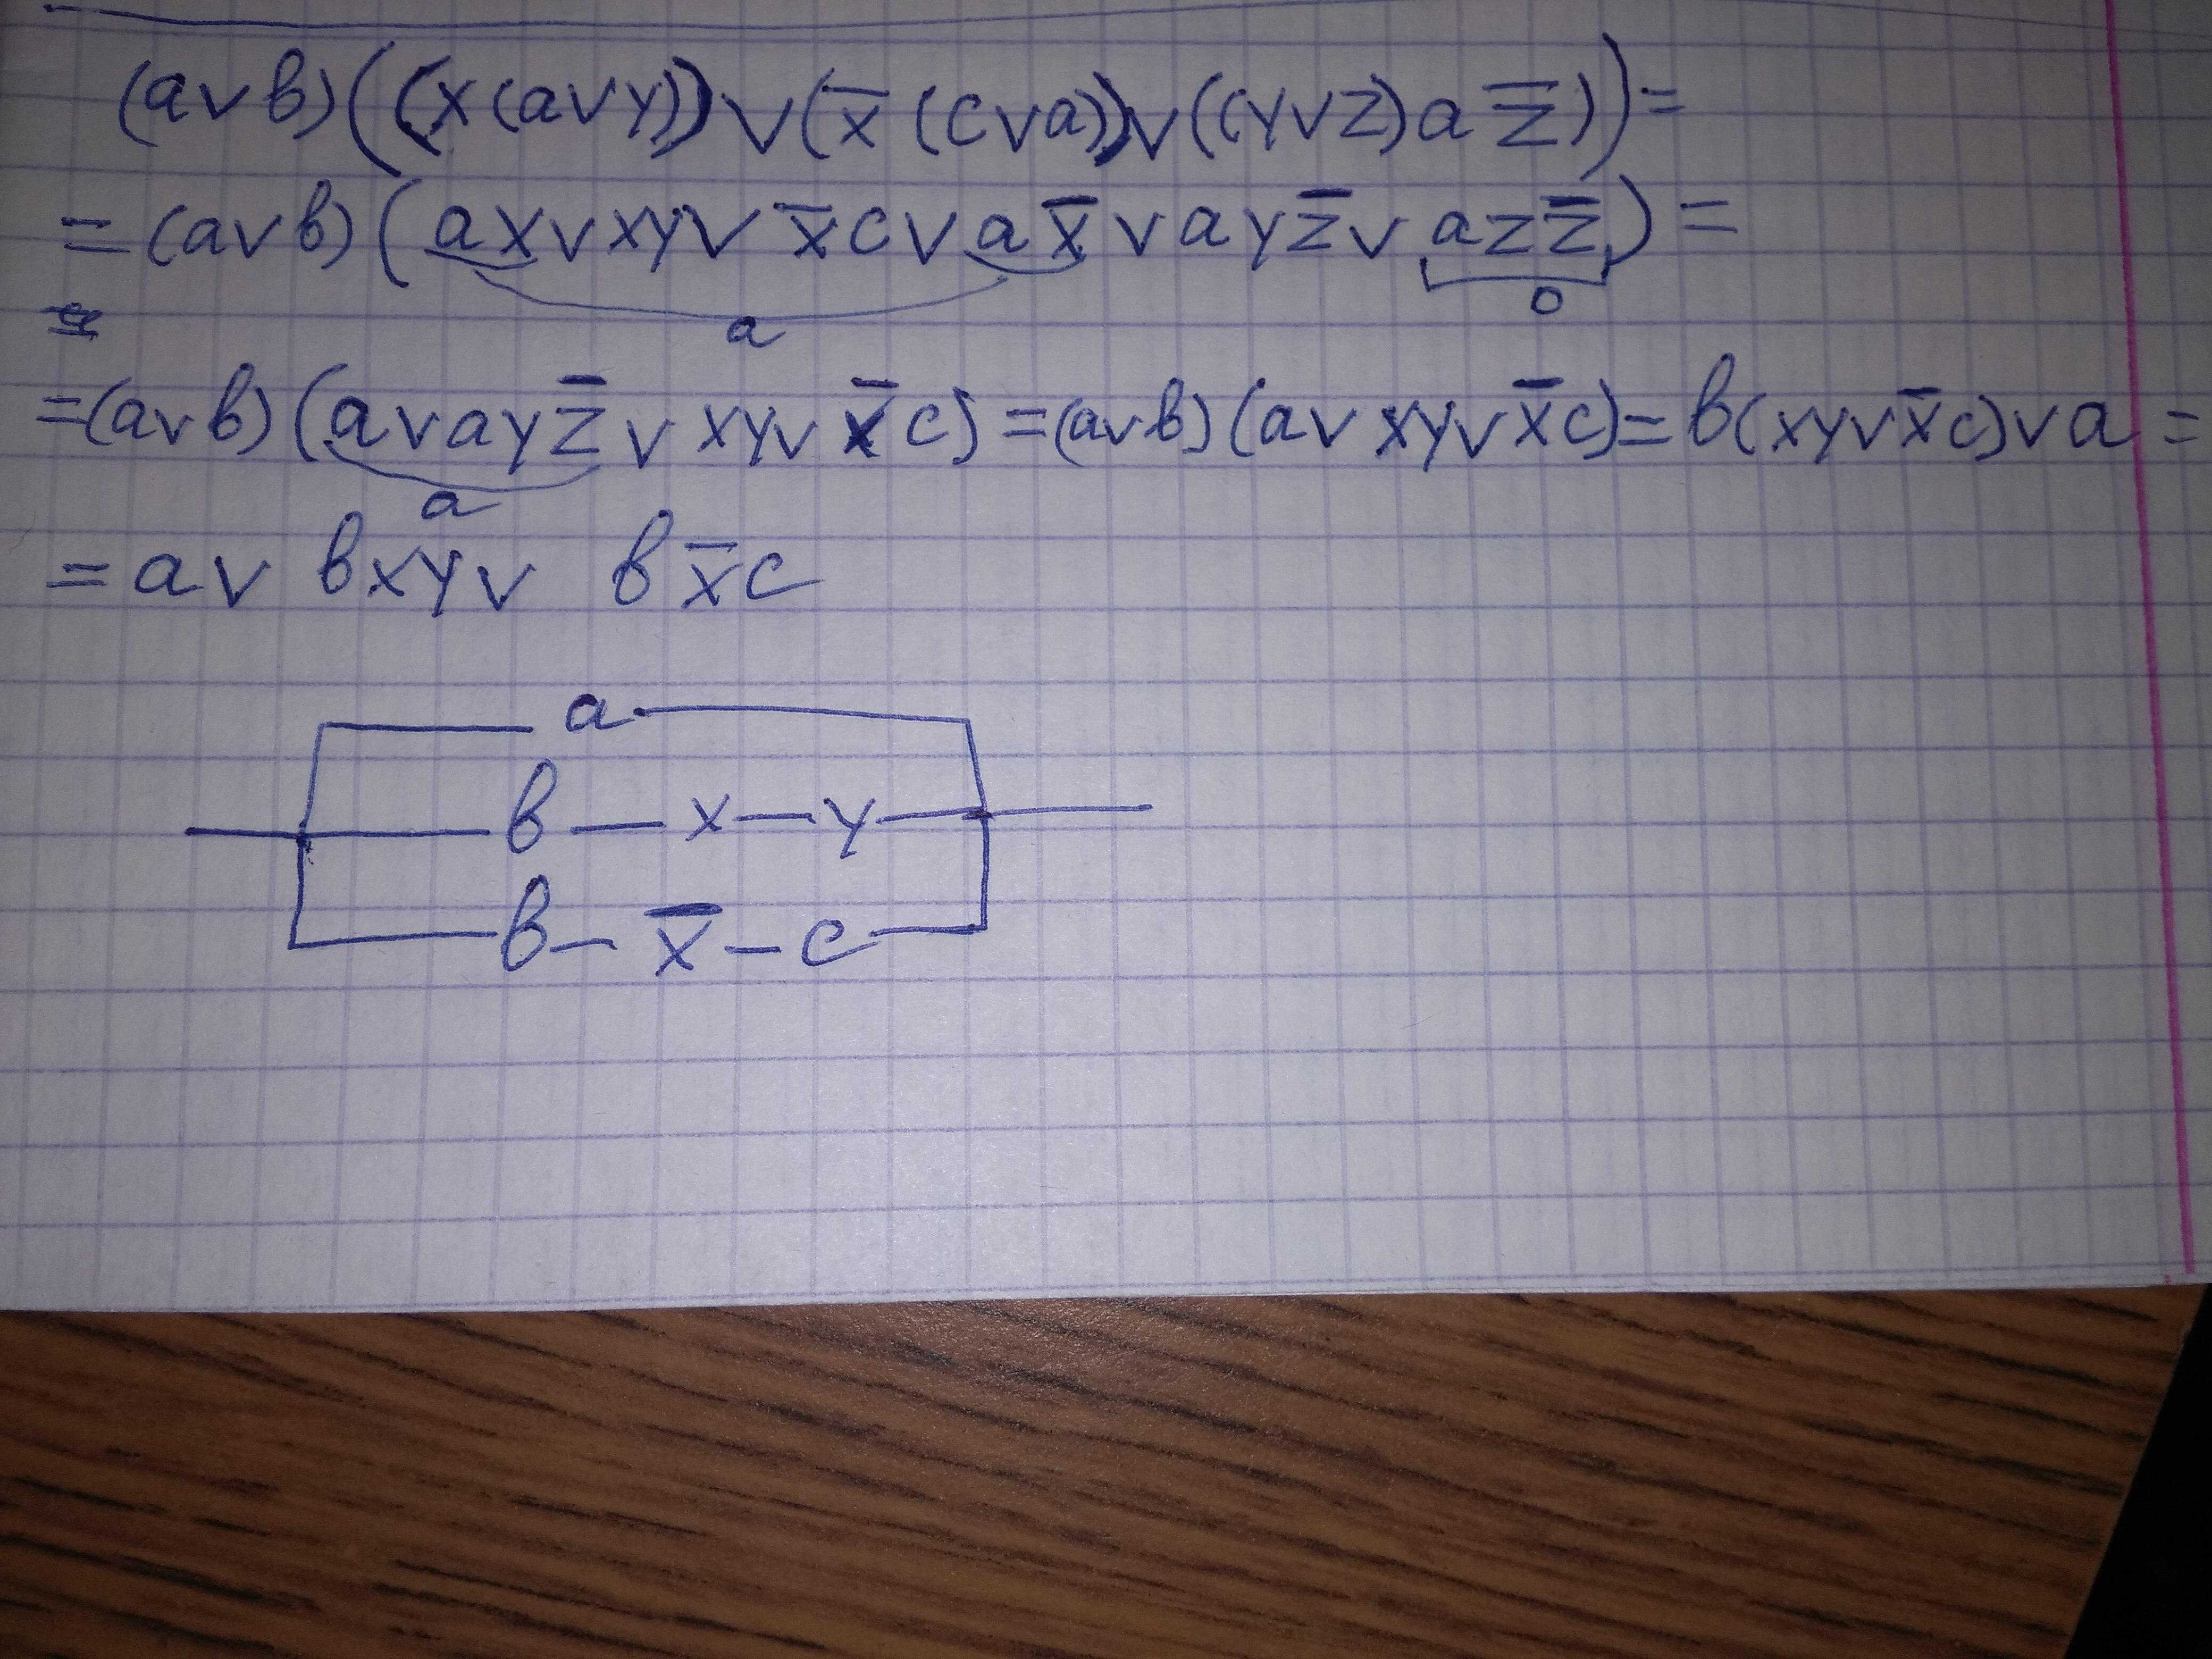 (a∨b)((x(a∨y))∨(x̅(c∨a))∨((y∨z)az̅))=
=(a∨b)(ax∨xy∨x̅c∨ax̅∨ayz̅∨azz̅)=
a 0
=(a∨b)(a∨ayz̅∨xy∨x̅c)=(a∨b)(a∨xy∨x̅c)=b(xy∨x̅c)∨a=
a
=a∨bxy∨bx̅c
a
b—x—y
b—x̅—c